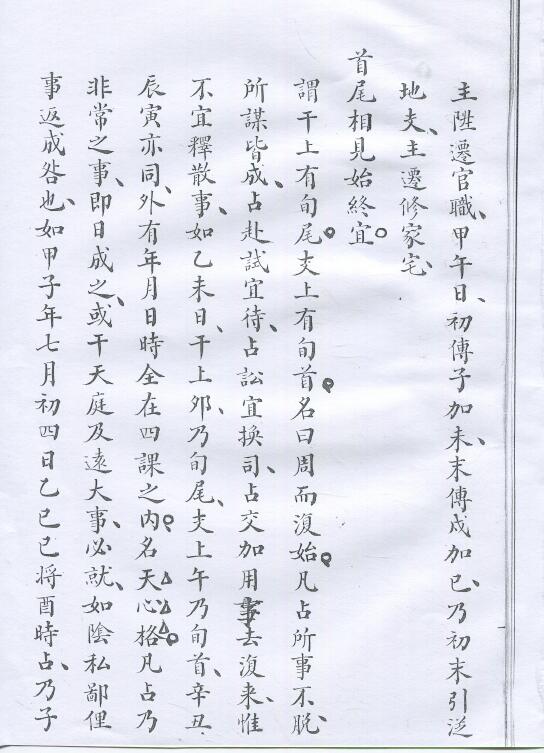 主陞遷官職、甲午日、初傳子加未、末傳戌加巳、乃初末引從
地支、主遷修家宅、
首尾相見始終宜。
謂干上有旬尾。支上有旬首。名曰周而復始。凡占所事不脫、
所謀皆成、占赴試宜待、占訟宜換司、占交加用事去復來、惟
不宜釋散事、如乙未日、干上夘、乃旬尾、支上午乃旬首、辛丑
辰寅亦同、外有年月日時全在四課之内。名天心格。凡占乃
非常之事、即日成之、或干天庭及遠大事、必就、如陰私鄙俚
事返成咎也、如甲子年七月初四日乙巳巳将酉時占、乃子